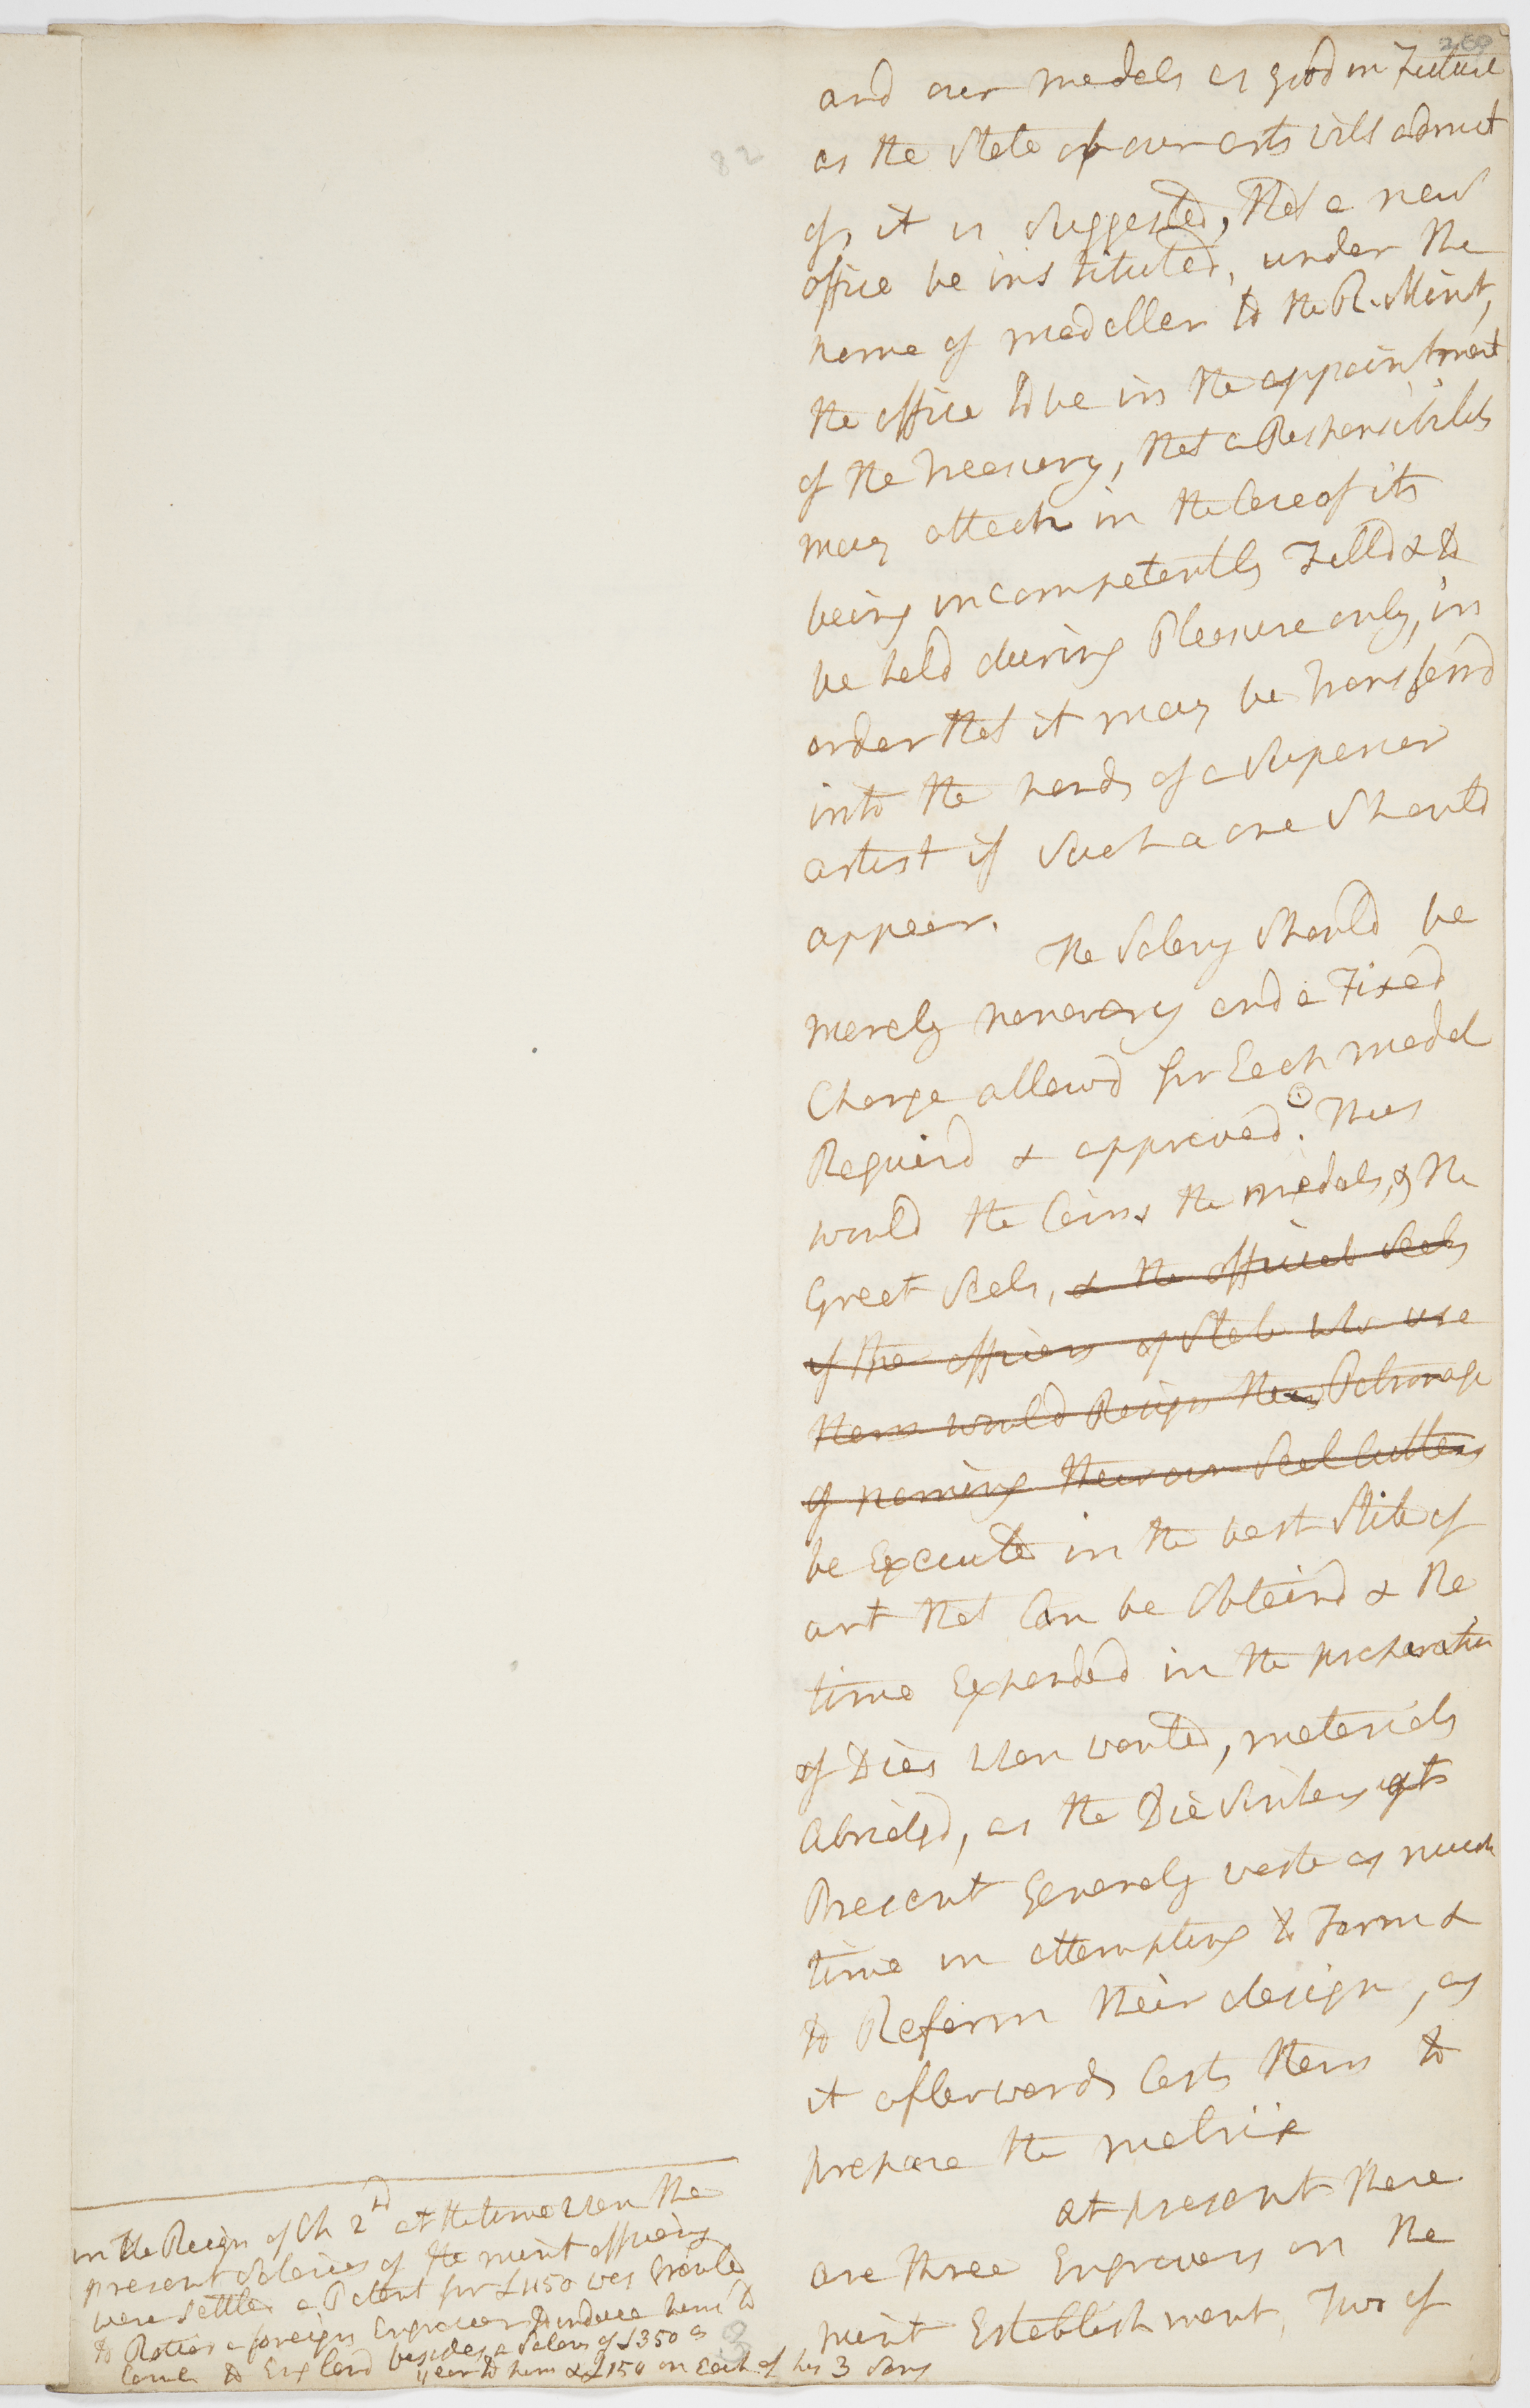 260
82
and our medals as good in Future
as the State of our arts will admit
of, it is Suggested, That a new
office be instituted, under the
name of modeller to the R. Mint,
the office to be in the appointment
of the treasury, that a Responsibility
may attach in the Case of its
being incompetently Filld & to
be held during Pleasure only, in
order that it may be transferrd
into the hands of a Superior
artist if Such a one Should
appear.
The Salary Should be
merely honorary and a Fixed
Charge allowd for Each model
Requird & approved. Thus
would the Coins the medals, & the
Great Seals, & the official Seals
of the officers of State who use
them would Resign their Patronage
of naming their own Seal Cutters
be Execute in the best Stile of
art that Can be Obtaind & the
time Expended in the preparation
of Dies when wanted, materialy
abridgd, as the Die Sinkers at
Present Generaly waste as much
time in attempting to Form &
to Reform their design, as
it afterwards Costs them to
prepare the matrix
at present there
are three Engravers on the
mint Establishment, Two of
in the Reign of Ch 2nd at the time when the
present Salaries of the mint officers
were Settled a Patent for £1150 was Granted
to Rotier a foreign Engraver to induce him to
Come to England besides a Salary of £350 a
year to him & £150 on Each of his 3 Sons